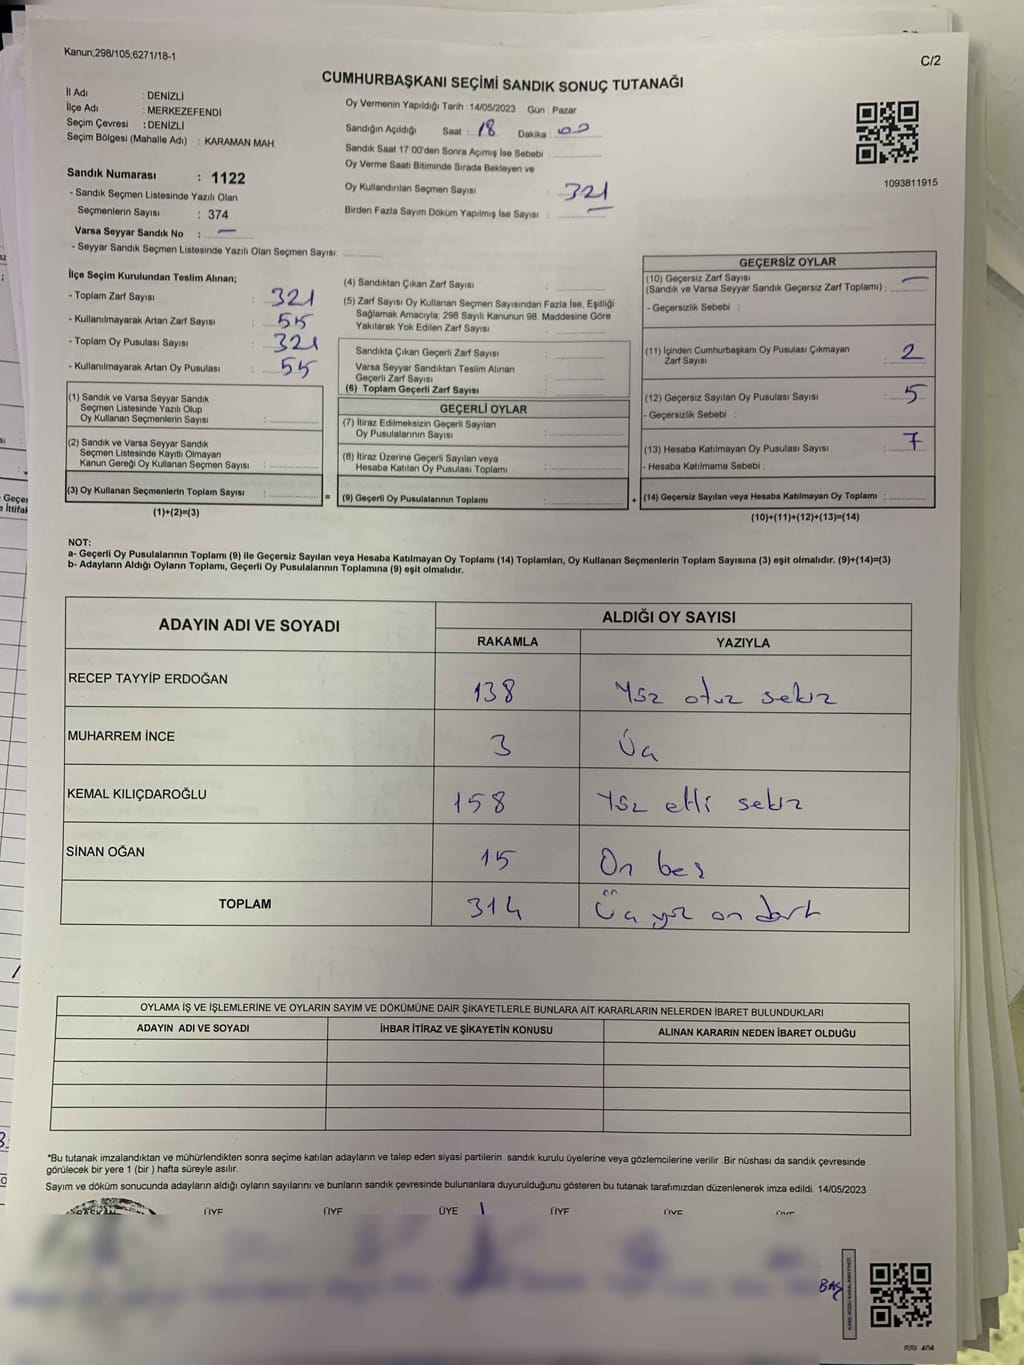 Kanun,298/105;6271/18-1
C/2
CUMHURBAŞKANI SEÇİMİ SANDIK SONUÇ TUTANAĞI
İl Adı : DENİZLİ
İlçe Adı : MERKEZEFENDİ
Seçim Çevresi : DENİZLİ
Seçim Bölgesi (Mahalle Adı) : KARAMAN MAH.
Sandık Numarası : 1122
- Sandık Seçmen Listesinde Yazılı Olan
Seçmenlerin Sayısı : 374
Varsa Seyyar Sandık No : —
- Seyyar Sandık Seçmen Listesinde Yazılı Olan Seçmen Sayısı: ............
Oy Vermenin Yapıldığı Tarih : 14/05/2023 Gün : Pazar
Sandığın Açıldığı Saat : 18 Dakika : 00
Sandık Saat 17:00'den Sonra Açımış İse Sebebi : ............
Oy Verme Saati Bitiminde Sırada Bekleyen ve
Oy Kullandırılan Seçmen Sayısı : 321
Birden Fazla Sayım Döküm Yapılmış İse Sayısı : —
1093811915
İlçe Seçim Kurulundan Teslim Alınan;
- Toplam Zarf Sayısı : 321
- Kullanılmayarak Artan Zarf Sayısı : 55
- Toplam Oy Pusulası Sayısı : 321
- Kullanılmayarak Artan Oy Pusulası : 55
(1) Sandık ve Varsa Seyyar Sandık
Seçmen Listesinde Yazılı Olup
Oy Kullanan Seçmenlerin Sayısı : ............
(2) Sandık ve Varsa Seyyar Sandık
Seçmen Listesinde Kayıtlı Olmayan
Kanun Gereği Oy Kullanan Seçmen Sayısı : ............
(3) Oy Kullanan Seçmenlerin Toplam Sayısı : ............
(1)+(2)=(3)
(4) Sandıktan Çıkan Zarf Sayısı : ............
(5) Zarf Sayısı Oy Kullanan Seçmen Sayısından Fazla İse, Eşitliği
Sağlamak Amacıyla; 298 Sayılı Kanunun 98. Maddesine Göre
Yakılarak Yok Edilen Zarf Sayısı : ............
Sandıkta Çıkan Geçerli Zarf Sayısı : ............
Varsa Seyyar Sandıktan Teslim Alınan
Geçerli Zarf Sayısı : ............
(6) Toplam Geçerli Zarf Sayısı : ............
GEÇERLİ OYLAR
(7) İtiraz Edilmeksizin Geçerli Sayılan
Oy Pusulalarının Sayısı : ............
(8) İtiraz Üzerine Geçerli Sayılan veya
Hesaba Katılan Oy Pusulası Toplamı : ............
= (9) Geçerli Oy Pusulalarının Toplamı : ............
GEÇERSİZ OYLAR
(10) Geçersiz Zarf Sayısı
(Sandık ve Varsa Seyyar Sandık Geçersiz Zarf Toplamı) : —
- Geçersizlik Sebebi :
(11) İçinden Cumhurbaşkanı Oy Pusulası Çıkmayan
Zarf Sayısı : 2
(12) Geçersiz Sayılan Oy Pusulası Sayısı : 5
- Geçersizlik Sebebi :
(13) Hesaba Katılmayan Oy Pusulası Sayısı : 7
- Hesaba Katılmama Sebebi :
+ (14) Geçersiz Sayılan veya Hesaba Katılmayan Oy Toplamı : ............
(10)+(11)+(12)+(13)=(14)
NOT:
a- Geçerli Oy Pusulalarının Toplamı (9) ile Geçersiz Sayılan veya Hesaba Katılmayan Oy Toplamı (14) Toplamları, Oy Kullanan Seçmenlerin Toplam Sayısına (3) eşit olmalıdır. (9)+(14)=(3)
b- Adayların Aldığı Oyların Toplamı, Geçerli Oy Pusulalarının Toplamına (9) eşit olmalıdır.
ADAYIN ADI VE SOYADI
ALDIĞI OY SAYISI
RAKAMLA YAZIYLA
RECEP TAYYİP ERDOĞAN 138 Yüz otuz sekiz
MUHARREM İNCE 3 Üç
KEMAL KILIÇDAROĞLU 158 Yüz elli sekiz
SİNAN OĞAN 15 On beş
TOPLAM 314 Üç yüz on dört
OYLAMA İŞ VE İŞLEMLERİNE VE OYLARIN SAYIM VE DÖKÜMÜNE DAİR ŞİKAYETLERLE BUNLARA AİT KARARLARIN NELERDEN İBARET BULUNDUKLARI
ADAYIN ADI VE SOYADI İHBAR İTİRAZ VE ŞİKAYETİN KONUSU ALINAN KARARIN NEDEN İBARET OLDUĞU
*Bu tutanak imzalandıktan ve mühürlendikten sonra seçime katılan adayların ve talep eden siyasi partilerin sandık kurulu üyelerine veya gözlemcilerine verilir .Bir nüshası da sandık çevresinde
görülecek bir yere 1 (bir ) hafta süreyle asılır.
Sayım ve döküm sonucunda adayların aldığı oyların sayılarını ve bunların sandık çevresinde bulunanlara duyurulduğunu gösteren bu tutanak tarafımızdan düzenlenerek imza edildi. 14/05/2023
BAŞKAN ÜYE ÜYE ÜYE ÜYE ÜYE ÜYE
BAŞ